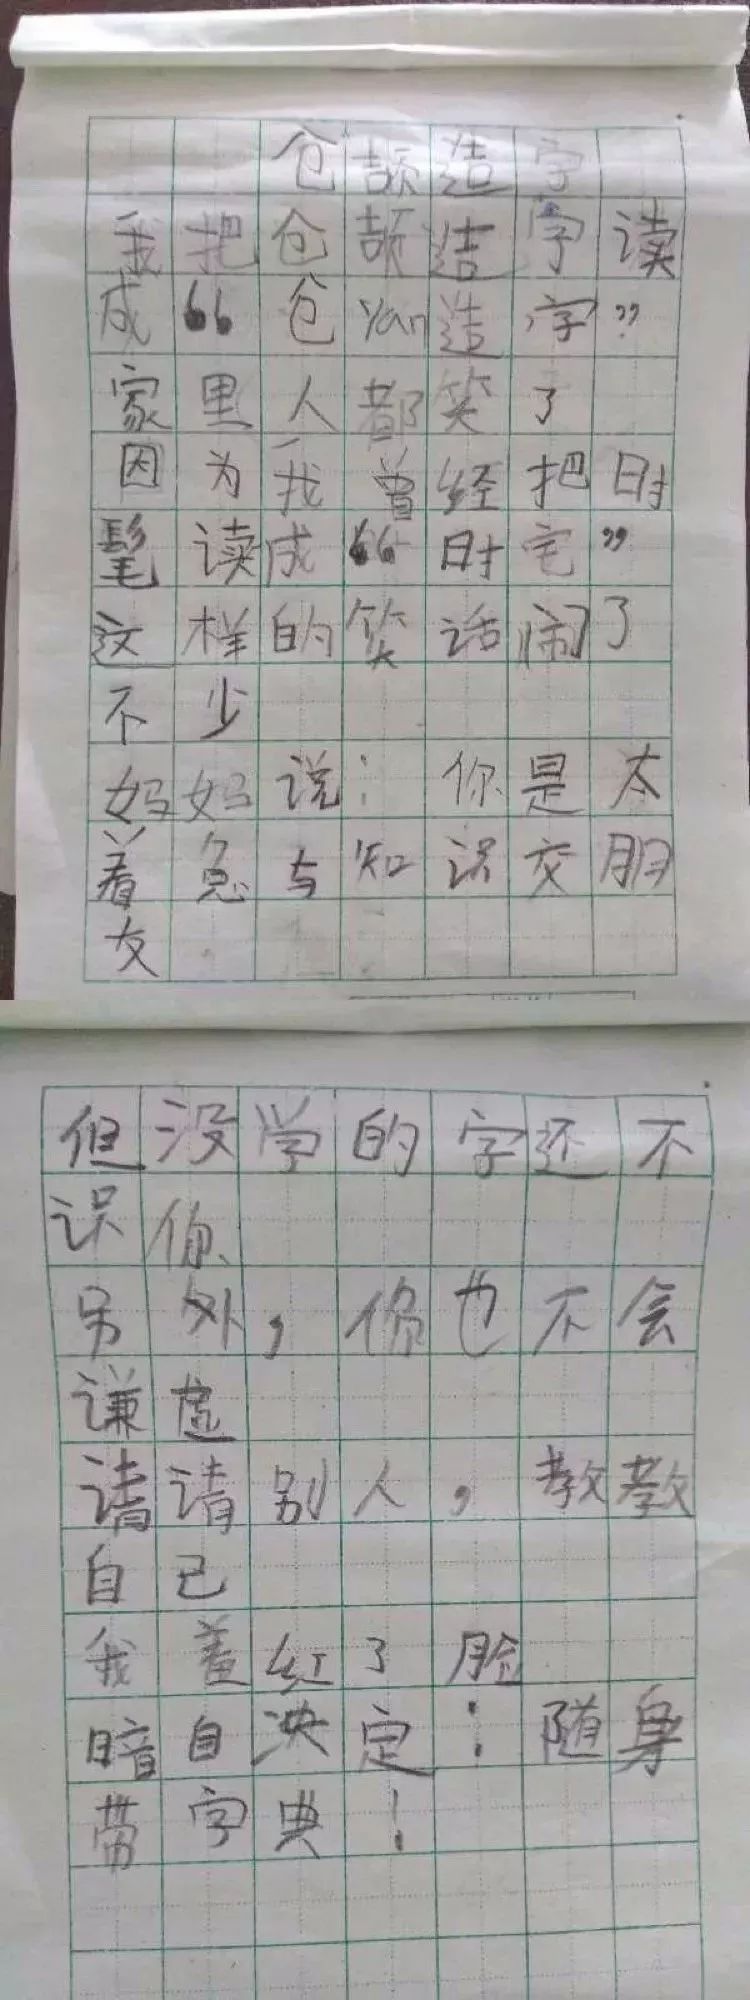 仓颉造字
我把仓颉造字读
成“仓yan造字”
家里人都笑了
因为我曾经把时
髦读成“时宅”
这样的笑话闹了
不少
妈妈说：你是太
着急与知识交朋
友
但没学的字还不
识你
另外，你也不会
谦虚
请请别人，教教
自己
我羞红了脸
暗自决定：随身
带字典！